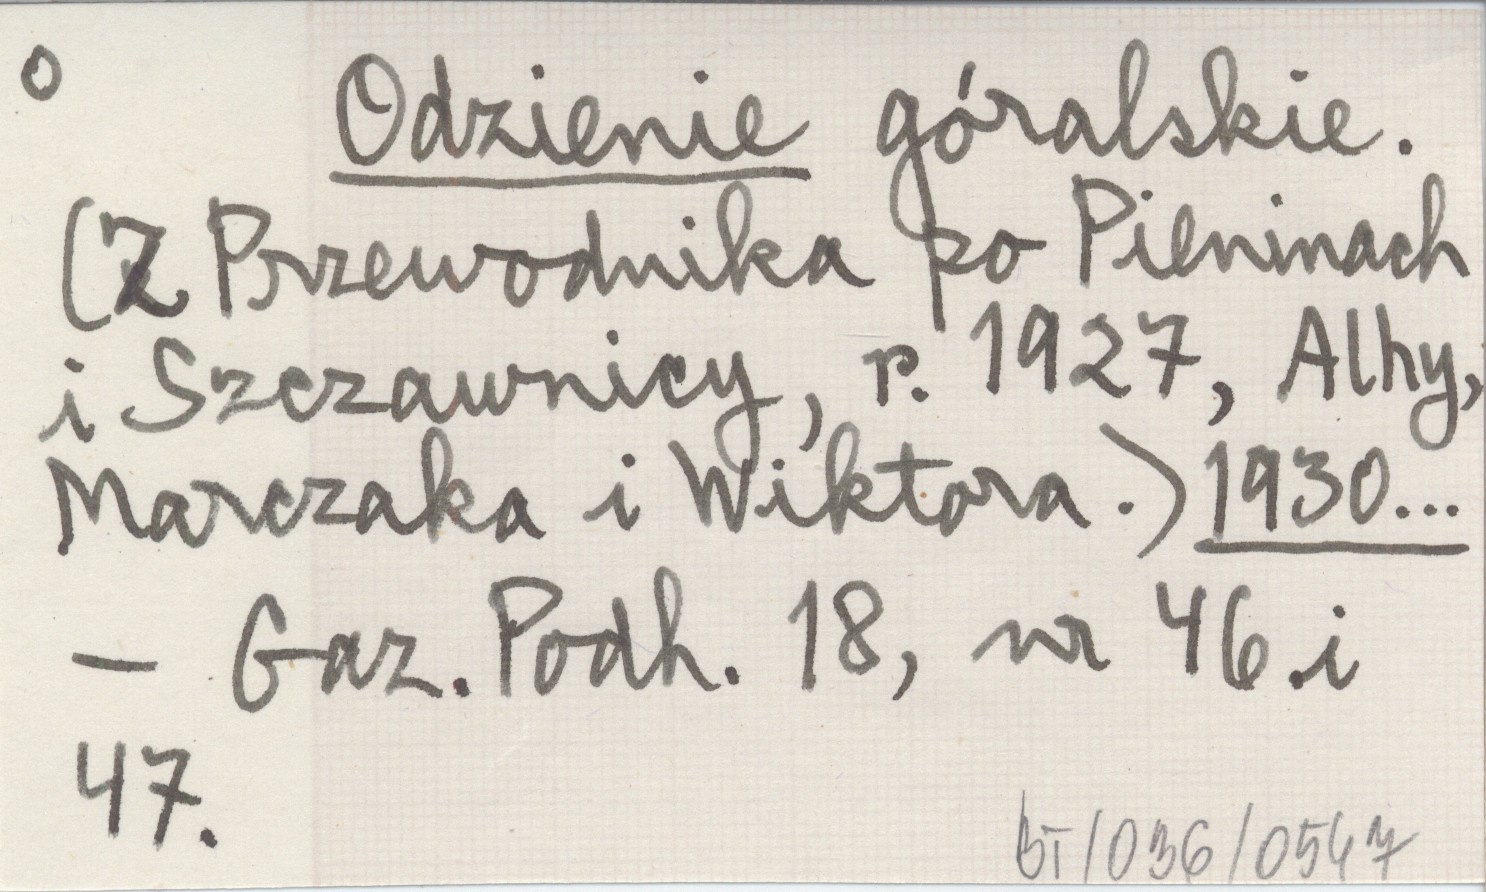 o Odzienie góralskie.
(Z Przewodnika po Pieninach
i Szczawnicy, r. 1927, Alhy,
Marczaka i Wiktora.) 1930...
— Gaz. Podh. 18, nr 46 i
47.
BT/036/0547